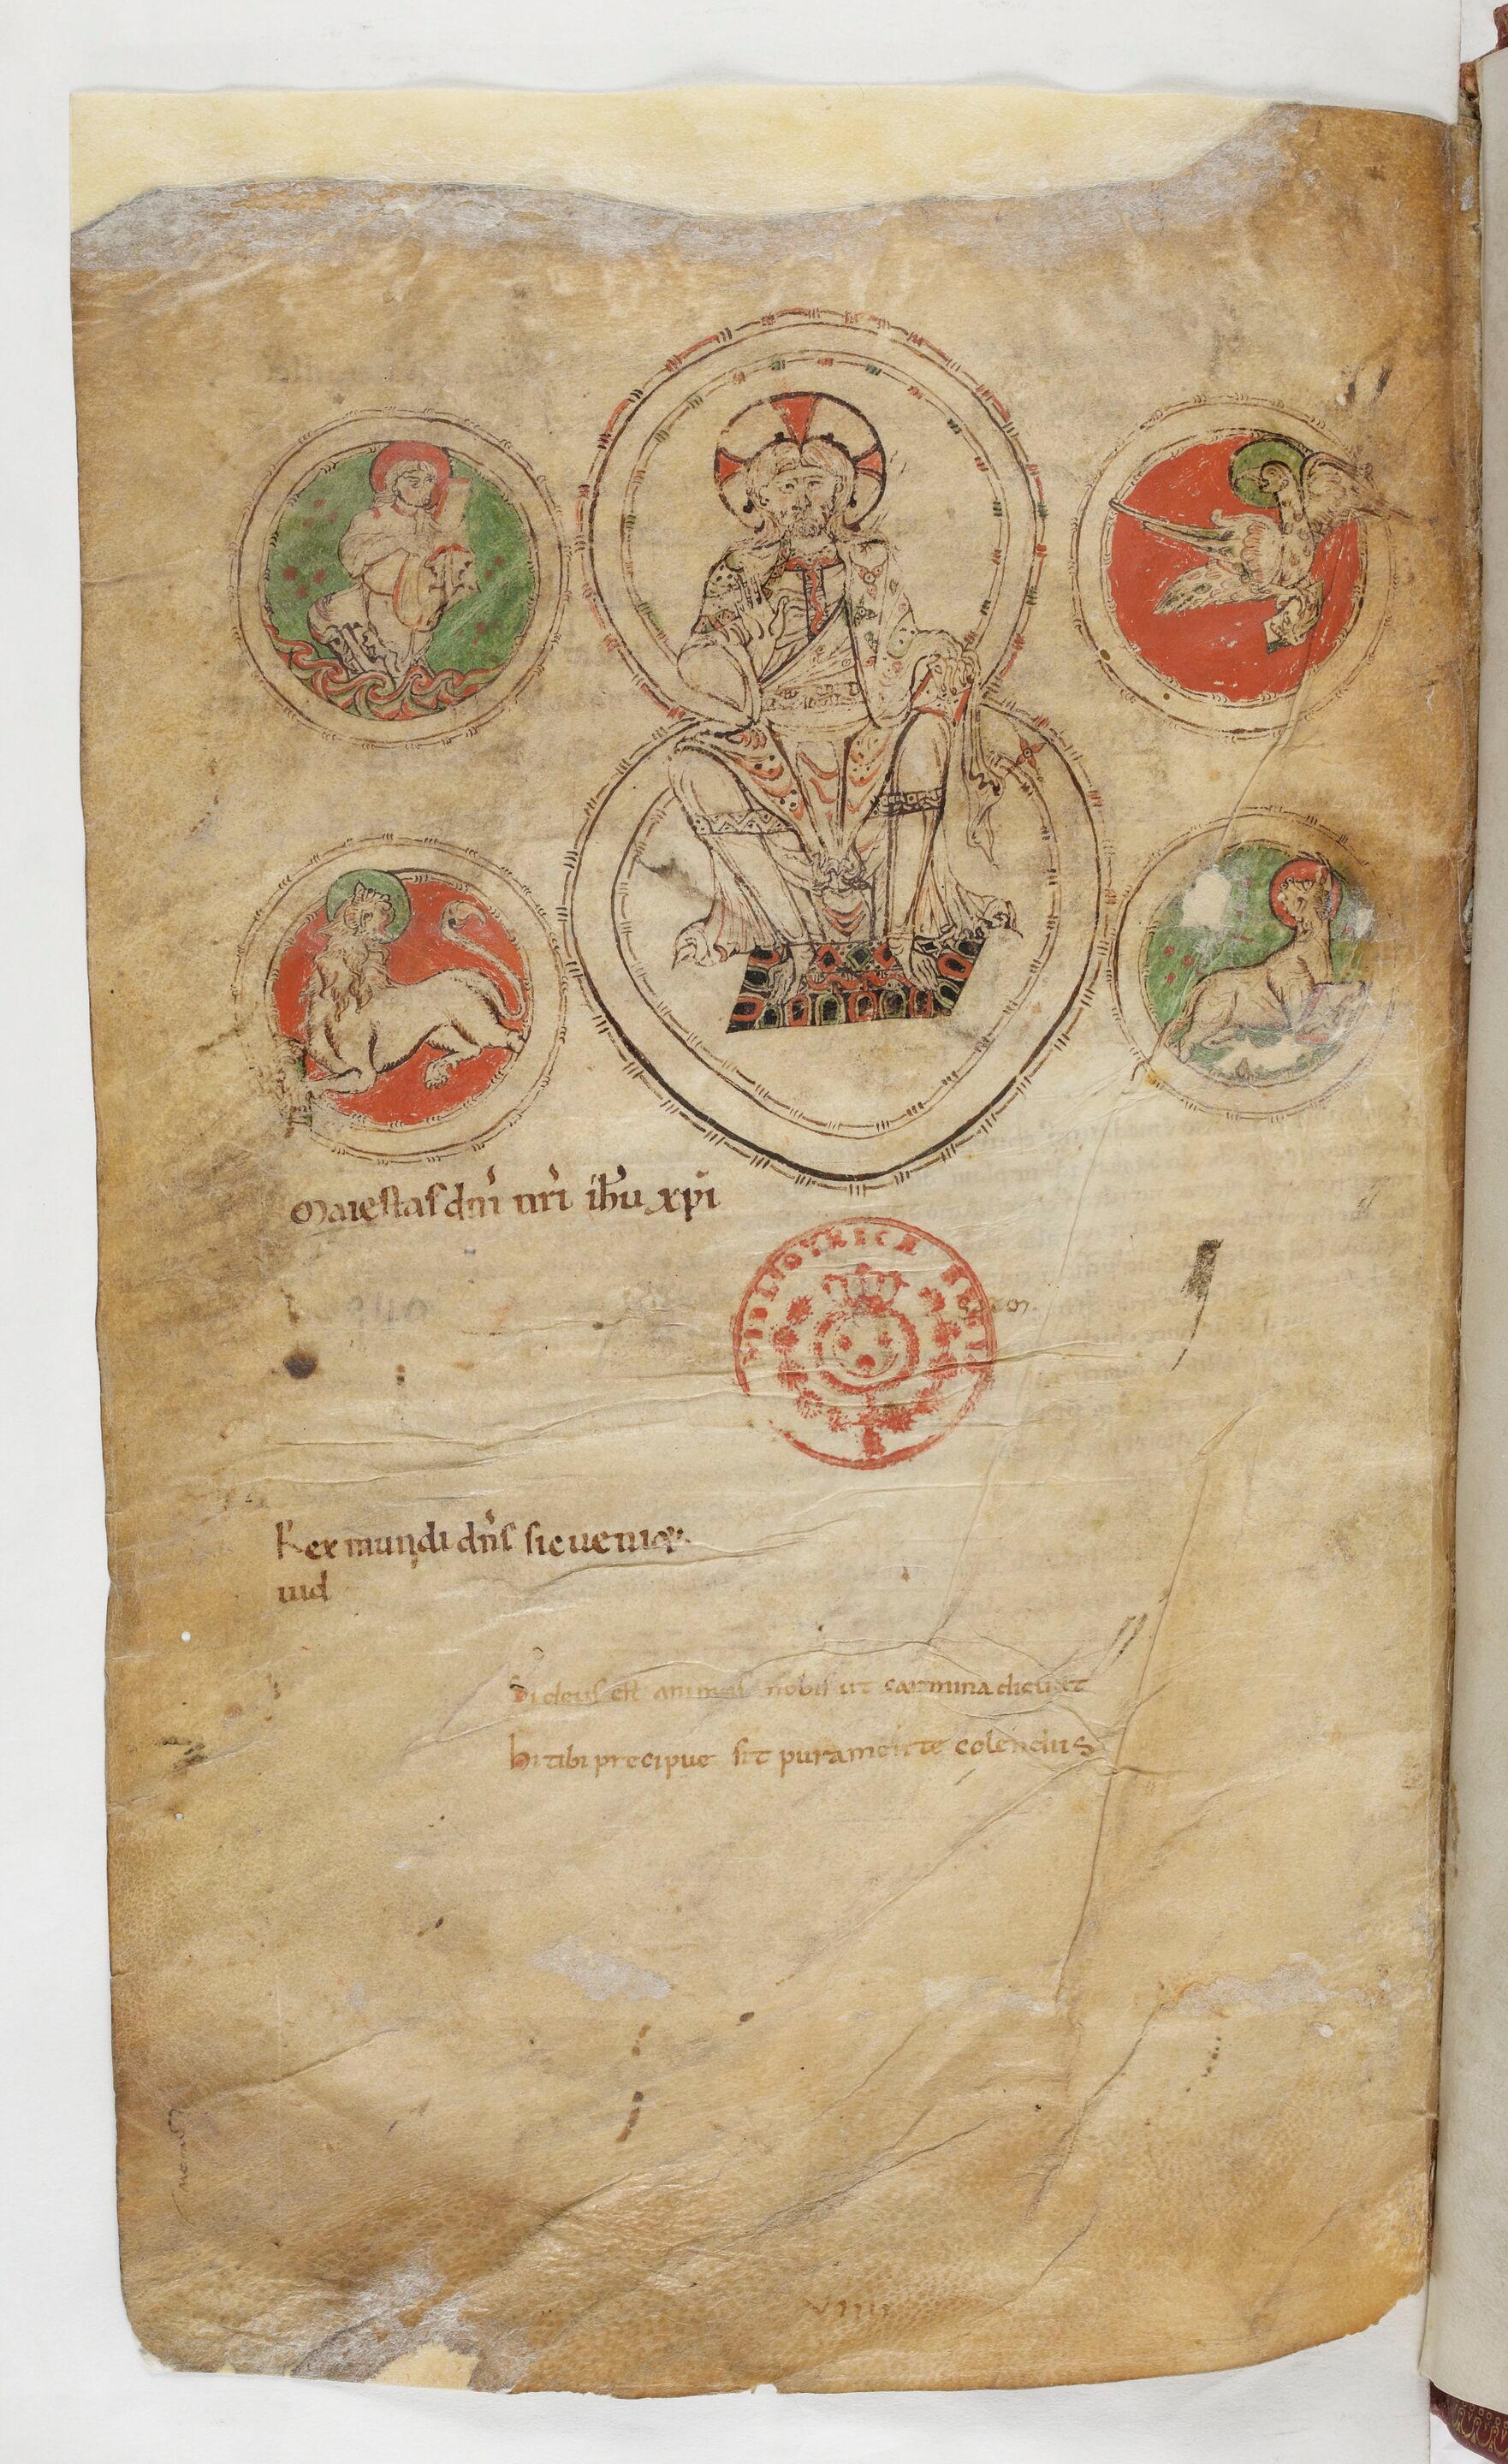 Maiestas dn̄i nr̄i ih̄u xp̄i
BIBLIOTHECA REGIA
Rex mundi dn̄s sic
uid
Si deus est animus nobis ut carmina dicunt
Hi tibi precipue sit pura mente colendus
VIIII